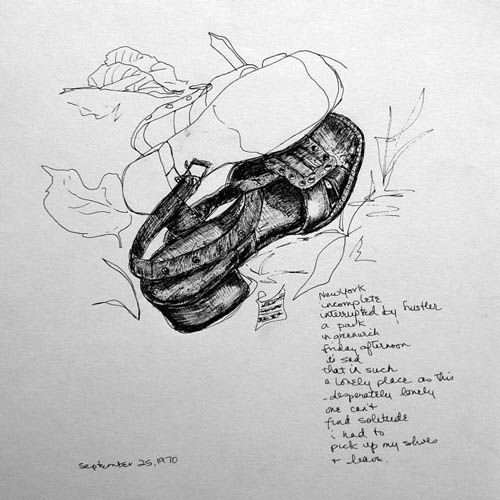 New York
incomplete
interrupted by hustler
a park
in greenwich
friday afternoon
its sad
that in such
a lonely place as this
- desperately lonely
one can't
find solitude
i had to
pick up my shoes
+ leave.
september 25, 1970